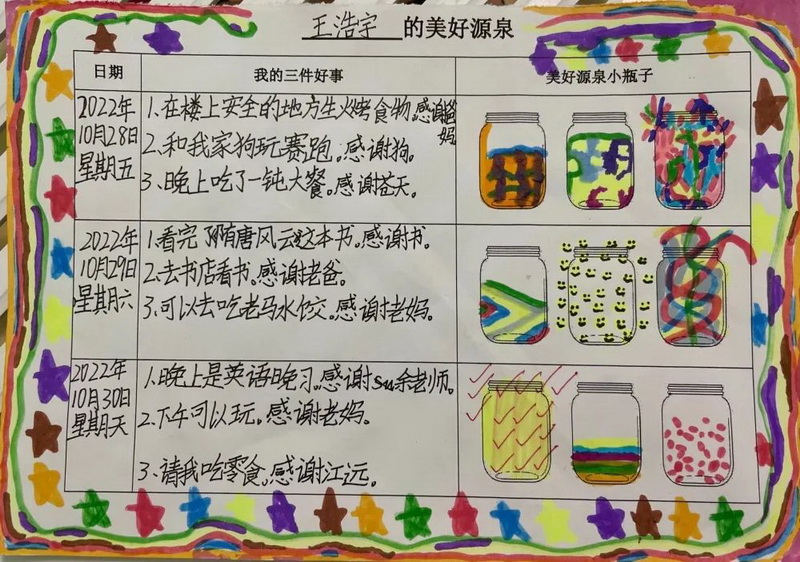 王浩宇 的美好源泉
日期 我的三件好事 美好源泉小瓶子
2022年
10月28日
星期五
1.在楼上安全的地方生火烤食物。感谢爸妈
2.和我家狗玩赛跑。感谢狗。
3.晚上吃了一钝大餐。感谢苍天。
2022年
10月29日
星期六
1.看完了隋唐风云这本书。感谢书。
2.去书店看书。感谢老爸。
3.可以去吃老马水饺。感谢老妈。
2022年
10月30日
星期天
1.晚上是英语晚习。感谢余老师。
2.下午可以玩。感谢老妈。
3.请我吃零食。感谢江远。